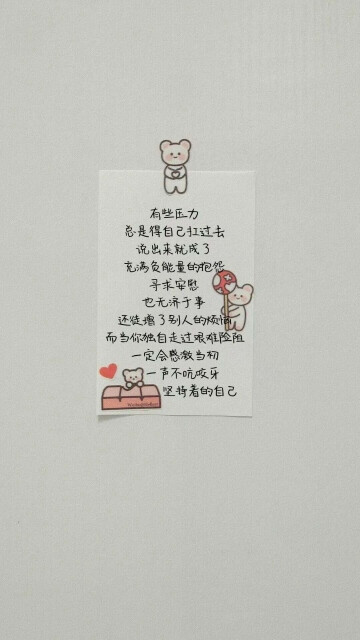 有些压力
总是得自己扛过去
说出来就成了
充满负能量的抱怨
寻求安慰
也无济于事
还徒增了别人的烦恼
而当你独自走过艰难险阻
一定会感激当初
一声不吭咬牙
坚持着的自己